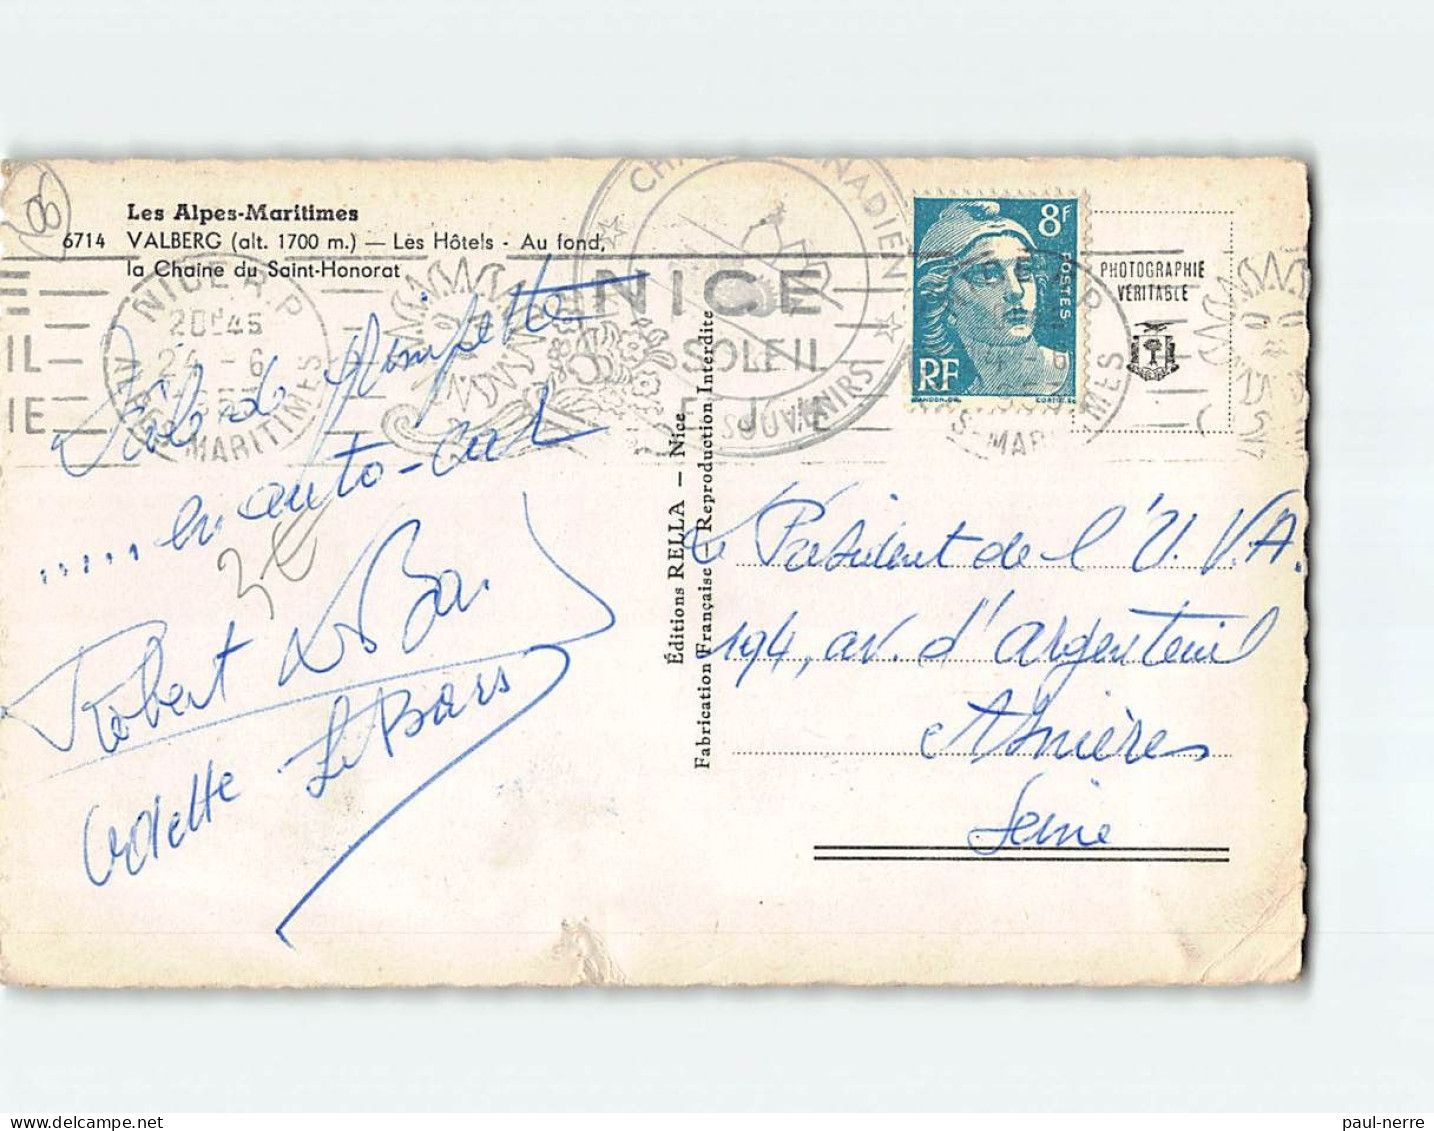 06
Les Alpes-Maritimes
6714 VALBERG (alt. 1700 m.) — Les Hôtels - Au fond,
la Chaine du Saint-Honorat
NICE R.P.
20H45
24 - 6
ALPES MARITIMES
NICE
SOLEIL
SOUVENIRS
de Grimpette
..... en auto-car
3€
Robert Le Bars
Odette Le Bars
Éditions RELLA — Nice
Fabrication Française — Reproduction Interdite
8F
POSTES
RF
GANDON.DEL
CORTOT.SC
PHOTOGRAPHIE
VÉRITABLE
Le Président de l'U.V.A.
194, av. d'Argenteuil
Asnières
Seine
paul-nerre